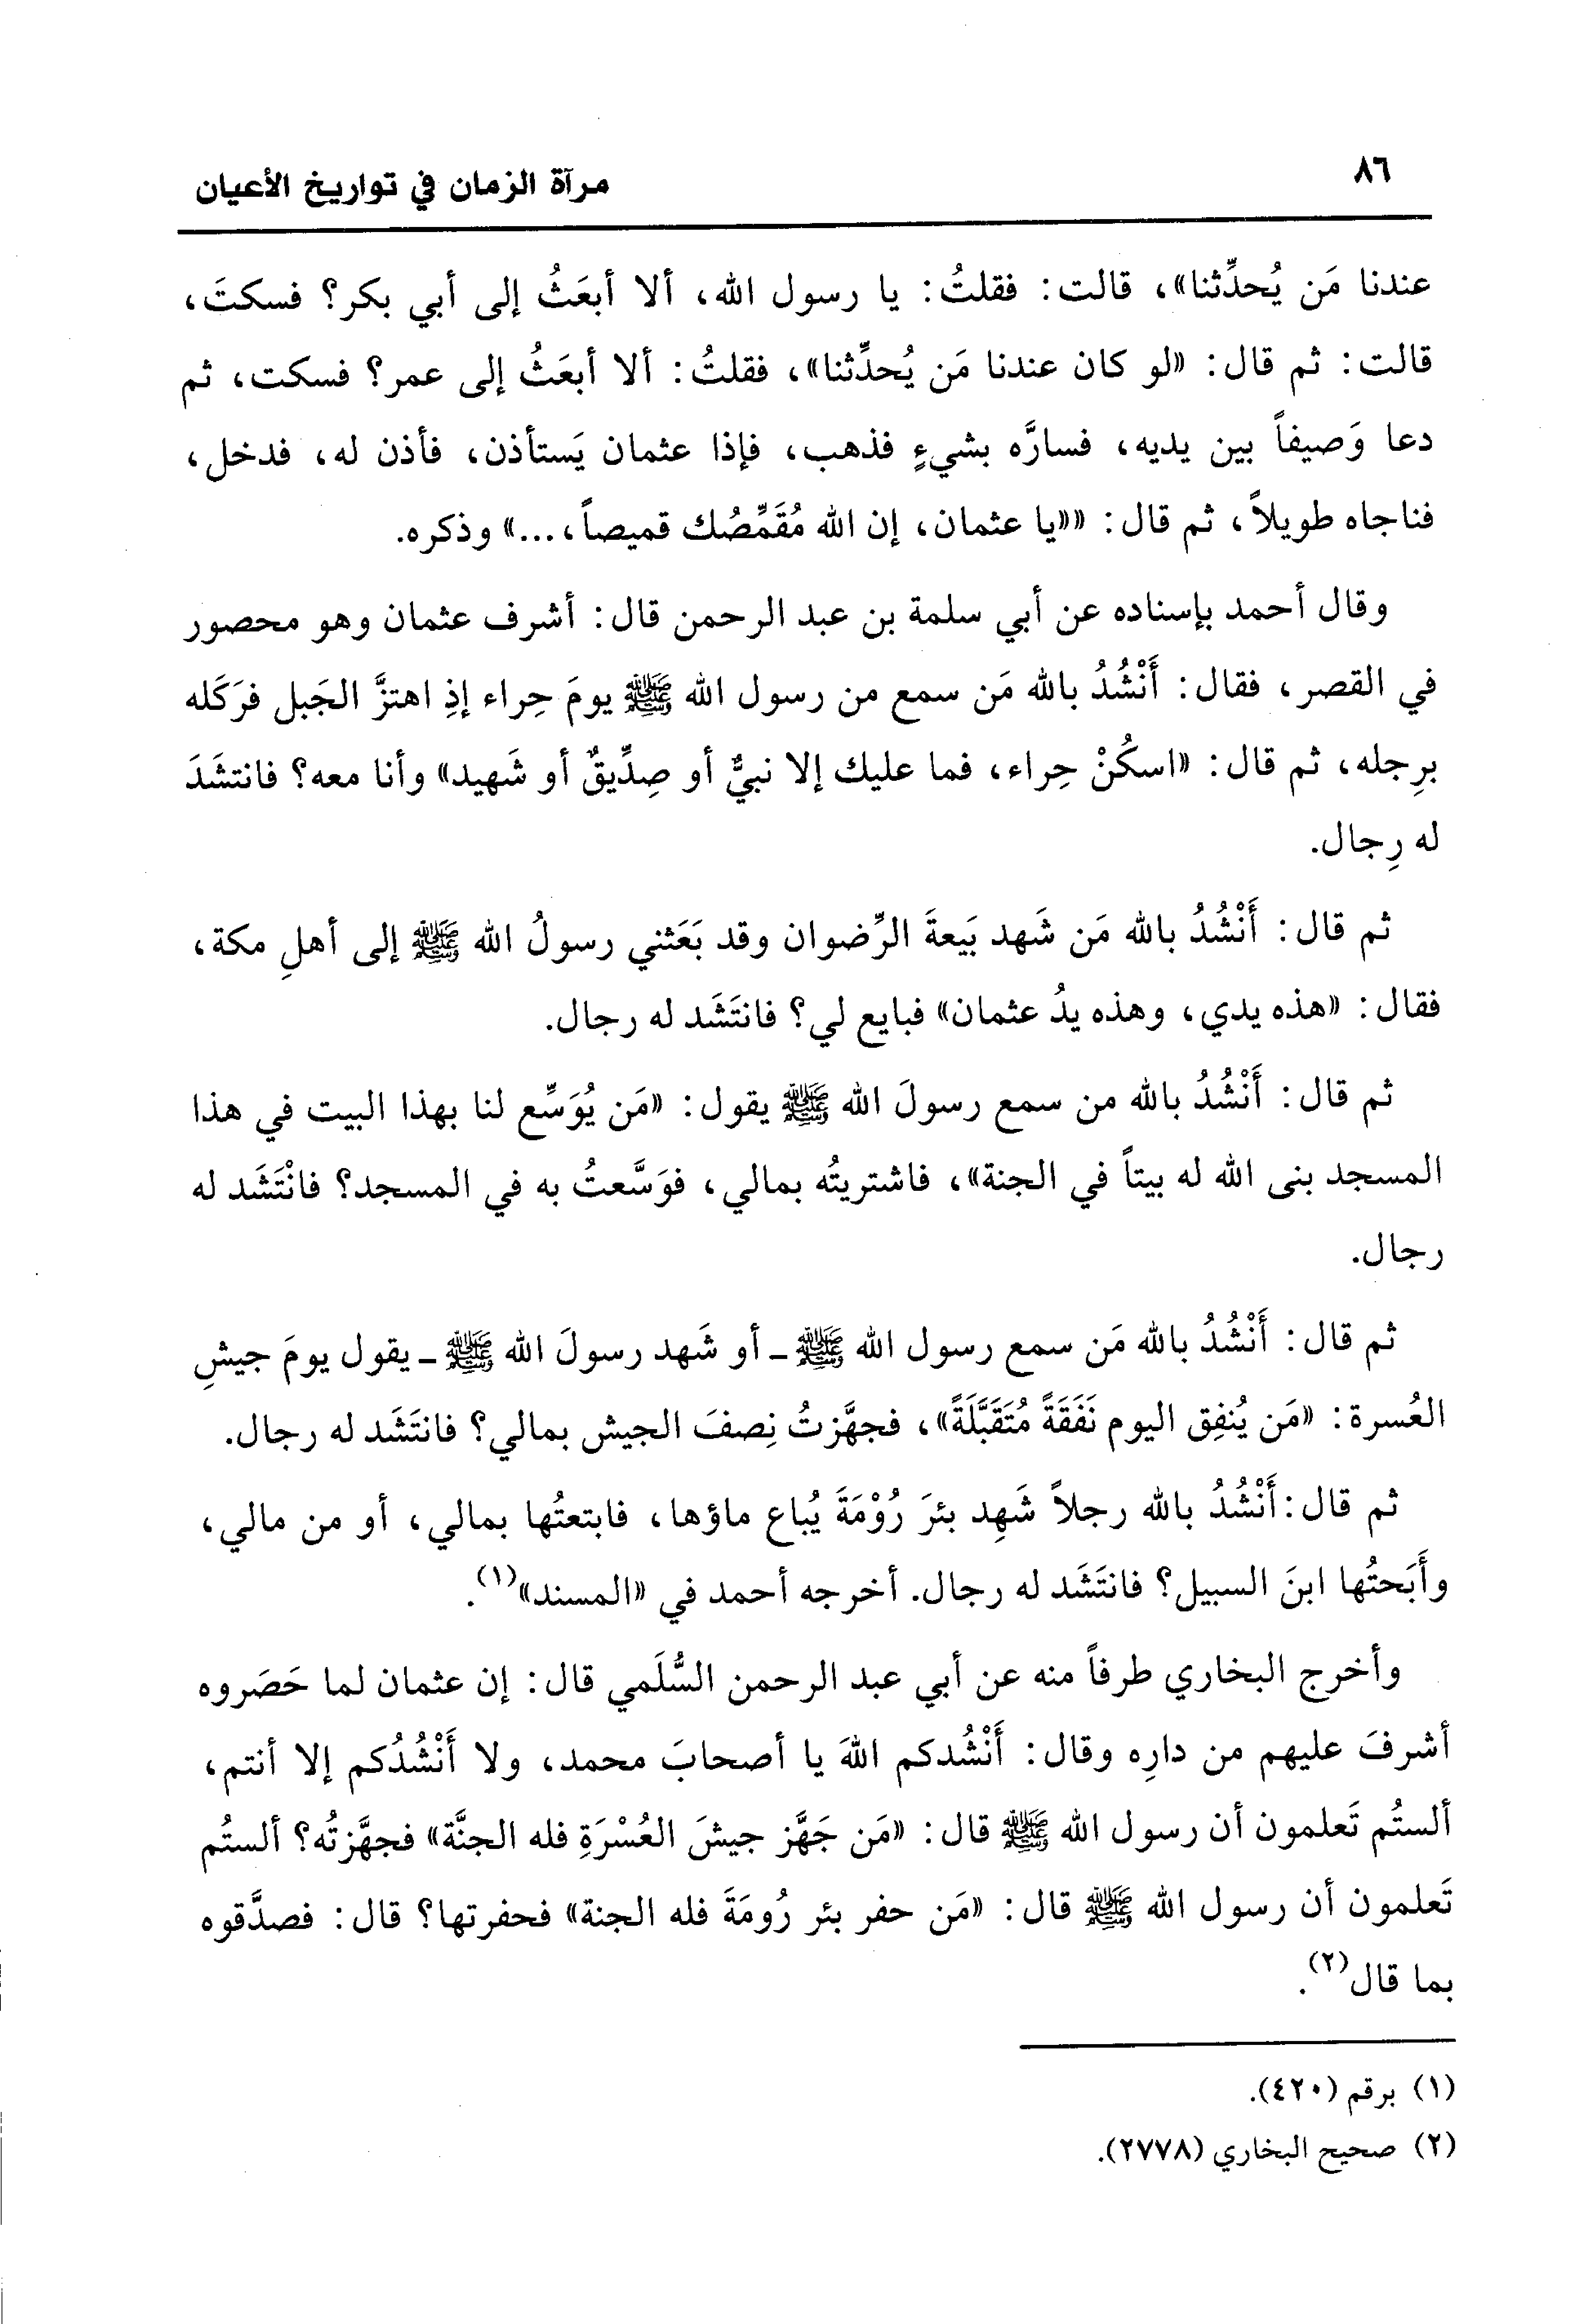 ٨٦
مرآة الزمان في تواريخ الأعيان
عندنا مَن يُحدِّثنا»، قالت: فقلتُ: يا رسول الله، ألا أبعَثُ إلى أبي بكر؟ فسكتَ،
قالت: ثم قال: «لو كان عندنا مَن يُحدِّثنا»، فقلتُ: ألا أبعَثُ إلى عمر؟ فسكت، ثم
دعا وَصيفاً بين يديه، فسارَّه بشيءٍ فذهب، فإذا عثمان يَستأذن، فأذن له، فدخل،
فناجاه طويلاً، ثم قال: ««يا عثمان، إن الله مُقَمِّصُك قميصاً،...» وذكره.
وقال أحمد بإسناده عن أبي سلمة بن عبد الرحمن قال: أشرف عثمان وهو محصور
في القصر، فقال: أَنْشُدُ بالله مَن سمع من رسول الله ﷺ يومَ حِراء إذِ اهتزَّ الجَبل فرَكَله
برِجله، ثم قال: «اسكُنْ حِراء، فما عليك إلا نبيٌّ أو صِدِّيقٌ أو شَهيد» وأنا معه؟ فانتشَدَ
له رِجال.
ثم قال: أَنْشُدُ بالله مَن شَهد بَيعةَ الرِّضوان وقد بَعَثني رسولُ الله ﷺ إلى أهلِ مكة،
فقال: «هذه يدي، وهذه يدُ عثمان» فبايع لي؟ فانتَشَد له رجال.
ثم قال: أَنْشُدُ بالله من سمع رسولَ الله ﷺ يقول: «مَن يُوَسِّع لنا بهذا البيت في هذا
المسجد بنى الله له بيتاً في الجنة»، فاشتريتُه بمالي، فوَسَّعتُ به في المسجد؟ فانْتَشَد له
رجال.
ثم قال: أَنْشُدُ بالله مَن سمع رسول الله ﷺ ـ أو شَهد رسولَ الله ﷺ ـ يقول يومَ جيشِ
العُسرة: «مَن يُنفِق اليوم نَفَقَةً مُتَقَبَّلَةً»، فجهَّزتُ نِصفَ الجيش بمالي؟ فانتَشَد له رجال.
ثم قال: أَنْشُدُ بالله رجلاً شَهِد بئرَ رُوْمَةَ يُباع ماؤها، فابتعتُها بمالي، أو من مالي،
وأَبَحتُها ابنَ السبيل؟ فانتَشَد له رجال. أخرجه أحمد في «المسند»(١).
وأخرج البخاري طرفاً منه عن أبي عبد الرحمن السُّلَمي قال: إن عثمان لما حَصَروه
أشرفَ عليهم من دارِه وقال: أَنْشُدكم اللهَ يا أصحابَ محمد، ولا أَنْشُدُكم إلا أنتم،
ألستُم تَعلمون أن رسول الله ﷺ قال: «مَن جَهَّز جيشَ العُسْرَةِ فله الجنَّة» فجهَّزتُه؟ ألستُم
تَعلمون أن رسول الله ﷺ قال: «مَن حفر بئر رُومَةَ فله الجنة» فحفرتها؟ قال: فصدَّقوه
بما قال(٢).
(١) برقم (٤٢٠).
(٢) صحيح البخاري (٢٧٧٨).